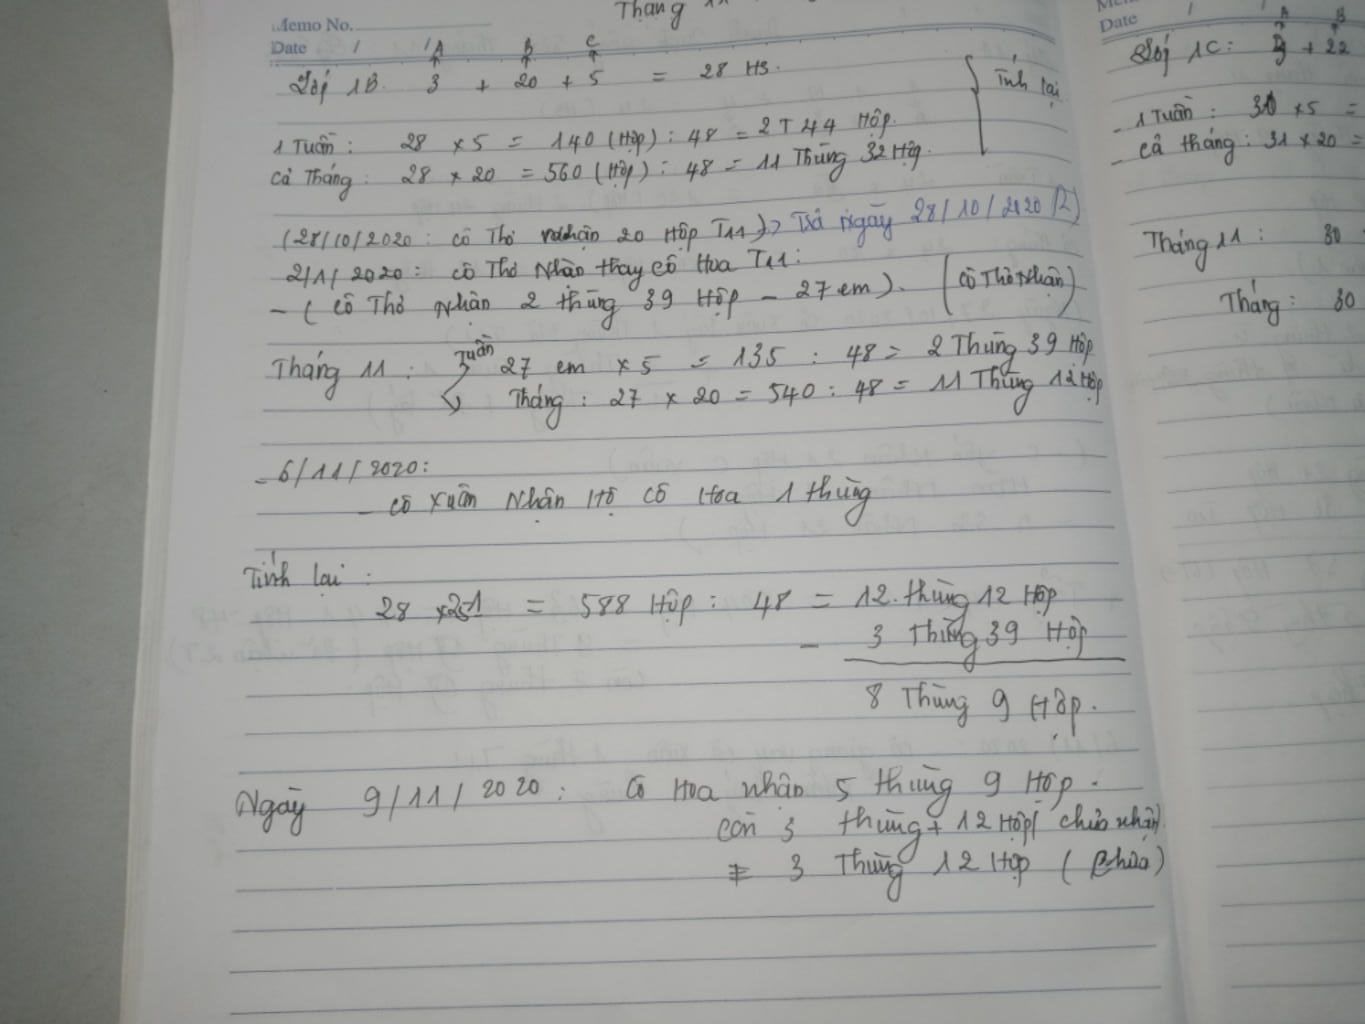 Tháng 11
Memo No.
Date / /
A B C
Lớp 1B. 3 + 20 + 5 = 28 HS.
Tính lại
1 Tuần: 28 x 5 = 140 (Hộp) : 48 = 2T 44 Hộp.
Cả Tháng: 28 x 20 = 560 (Hộp) : 48 = 11 Thùng 32 Hộp.
(28/10/2020: cô Thơ nhận 20 Hộp T11) > Trả ngày 28/10/2020
2/1/2020: cô Thơ Nhận thay cô Hoa T11:
- (Cô Thơ Nhận 2 thùng 39 Hộp - 27 em). (Cô Thơ Nhận)
Tháng 11: Tuần 27 em x 5 = 135 : 48 = 2 Thùng 39 Hộp
Tháng: 27 x 20 = 540 : 48 = 11 Thùng 12 Hộp
- 6/11/2020:
- cô Xuân Nhận Hộ cô Hoa 1 thùng
Tính lại:
28 x 21 = 588 Hộp : 48 = 12 thùng 12 Hộp
- 3 Thùng 39 Hộp
8 Thùng 9 Hộp.
Ngày 9/11/2020: Cô Hoa nhận 5 thùng 9 Hộp.
còn 3 thùng + 12 Hộp chưa nhận
= 3 Thùng 12 Hộp (chưa)
Date / /
A B
Lớp 1C: + 22
- 1 Tuần: 31 x 5 =
- cả tháng: 31 x 20 =
Tháng 11: 30
Tháng: 30